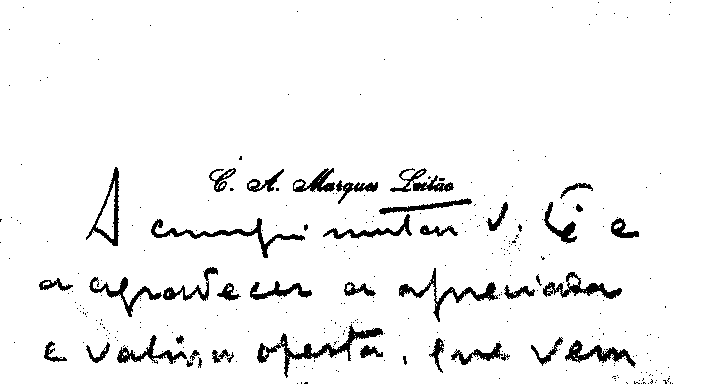 C. A. Marques Leitão
A cumprimentar V. Ex.ª e
a agradecer a apreciada
e valiosa oferta, que vem